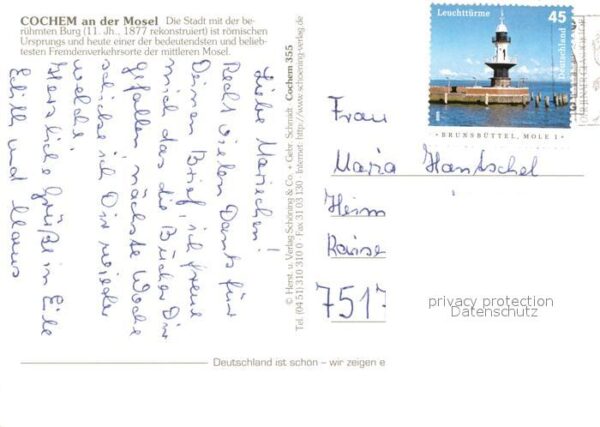 COCHEM an der Mosel Die Stadt mit der be-
rühmten Burg (11. Jh., 1877 rekonstruiert) ist römischen
Ursprungs und heute einer der bedeutendsten und belieb-
testen Fremdenverkehrsorte der mittleren Mosel.
Liebe Mariechen!
Recht vielen Dank für
Deinen Brief, ich freue
mich das die Bücher Dir
gefallen, nächste Woche
schicke ich Dir wieder
welche.
Herzliche Grüße in Eile
Edith und Klaus
© Herst. u. Verlag Schöning & Co. + Gebr. Schmidt Cochem 355
Tel. (04 51) 310 310 0 Fax 31 03 130 Internet: http://www.schoening-verlag.de
Leuchttürme 45
Deutschland
BRUNSBÜTTEL, MOLE 1
Frau
Maria Hantschel
Heim
Kaise
7517
privacy protection
Datenschutz
Deutschland ist schön – wir zeigen e